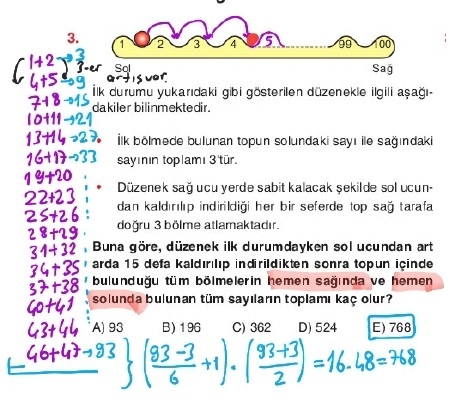 3.
1 2 3 4 5 99 100
Sol Sağ
3-er artış var.
İlk durumu yukarıdaki gibi gösterilen düzenekle ilgili aşağı-
dakiler bilinmektedir.
• İlk bölmede bulunan topun solundaki sayı ile sağındaki
sayının toplamı 3'tür.
• Düzenek sağ ucu yerde sabit kalacak şekilde sol ucun-
dan kaldırılıp indirildiği her bir seferde top sağ tarafa
doğru 3 bölme atlamaktadır.
Buna göre, düzenek ilk durumdayken sol ucundan art
arda 15 defa kaldırılıp indirildikten sonra topun içinde
bulunduğu tüm bölmelerin hemen sağında ve hemen
solunda bulunan tüm sayıların toplamı kaç olur?
A) 93 B) 196 C) 362 D) 524 E) 768
1+2→3
4+5→9
7+8→15
10+11→21
13+14→27
16+17→33
19+20
22+23
25+26
28+29
31+32
34+35
37+38
40+41
43+44
46+47→93 } (93-3/6 +1) · (93+3/2) = 16.48=768